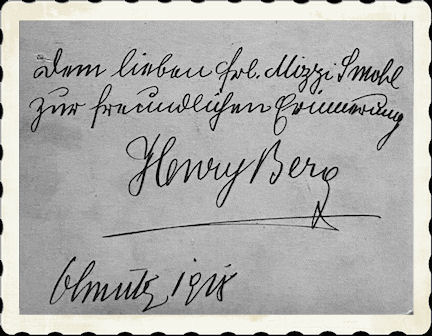 Dem lieben Frl. Mizzi Smohl
zur freundlichen Erinnerung
Henry Berg
Olmütz, 1918